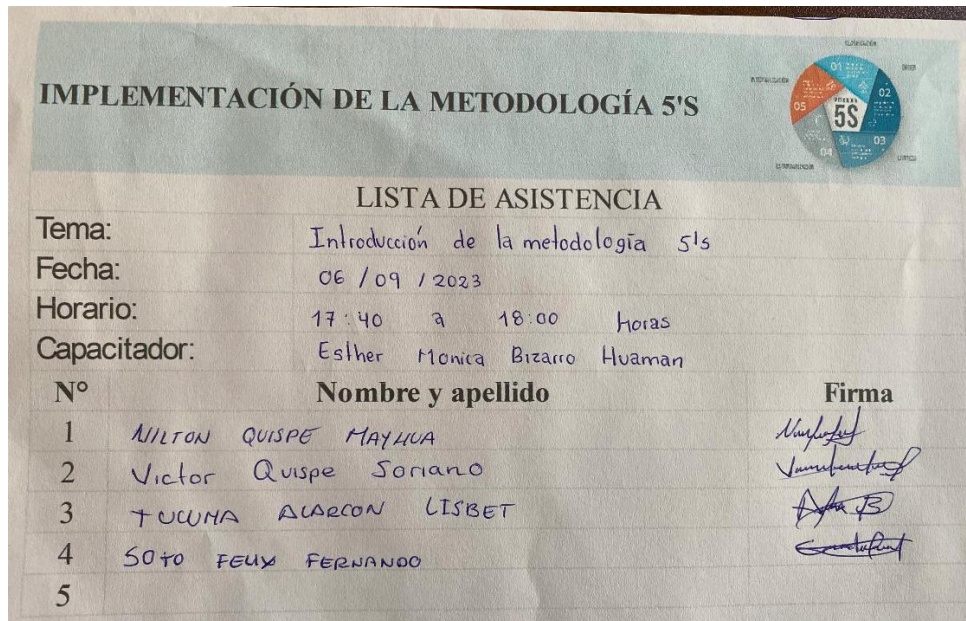 IMPLEMENTACIÓN DE LA METODOLOGÍA 5'S
01
02
03
04
05
5S
LISTA DE ASISTENCIA
Tema: Introducción de la metodología 5's
Fecha: 06 / 09 / 2023
Horario: 17:40 a 18:00 Horas
Capacitador: Esther Monica Bizarro Huaman
N° Nombre y apellido Firma
1 NILTON QUISPE MAYHUA
2 Victor Quispe Soriano
3 TUCUMA ALARCON LISBET
4 SOTO FELIX FERNANDO
5